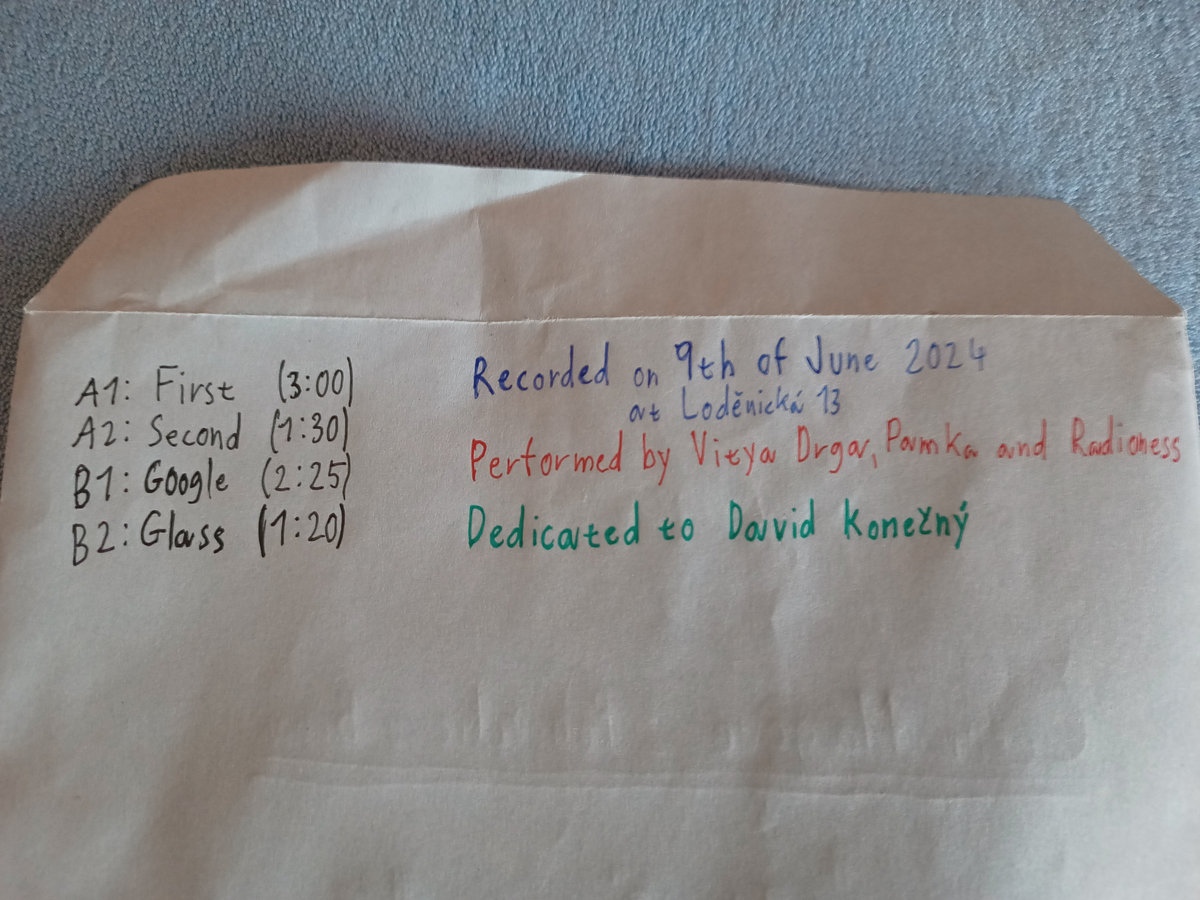 A1: First (3:00)
A2: Second (1:30)
B1: Google (2:25)
B2: Glass (1:20)
Recorded on 9th of June 2024
at Loděnická 13
Performed by Vitya Drga, Pamka and Radioness
Dedicated to David Konečný